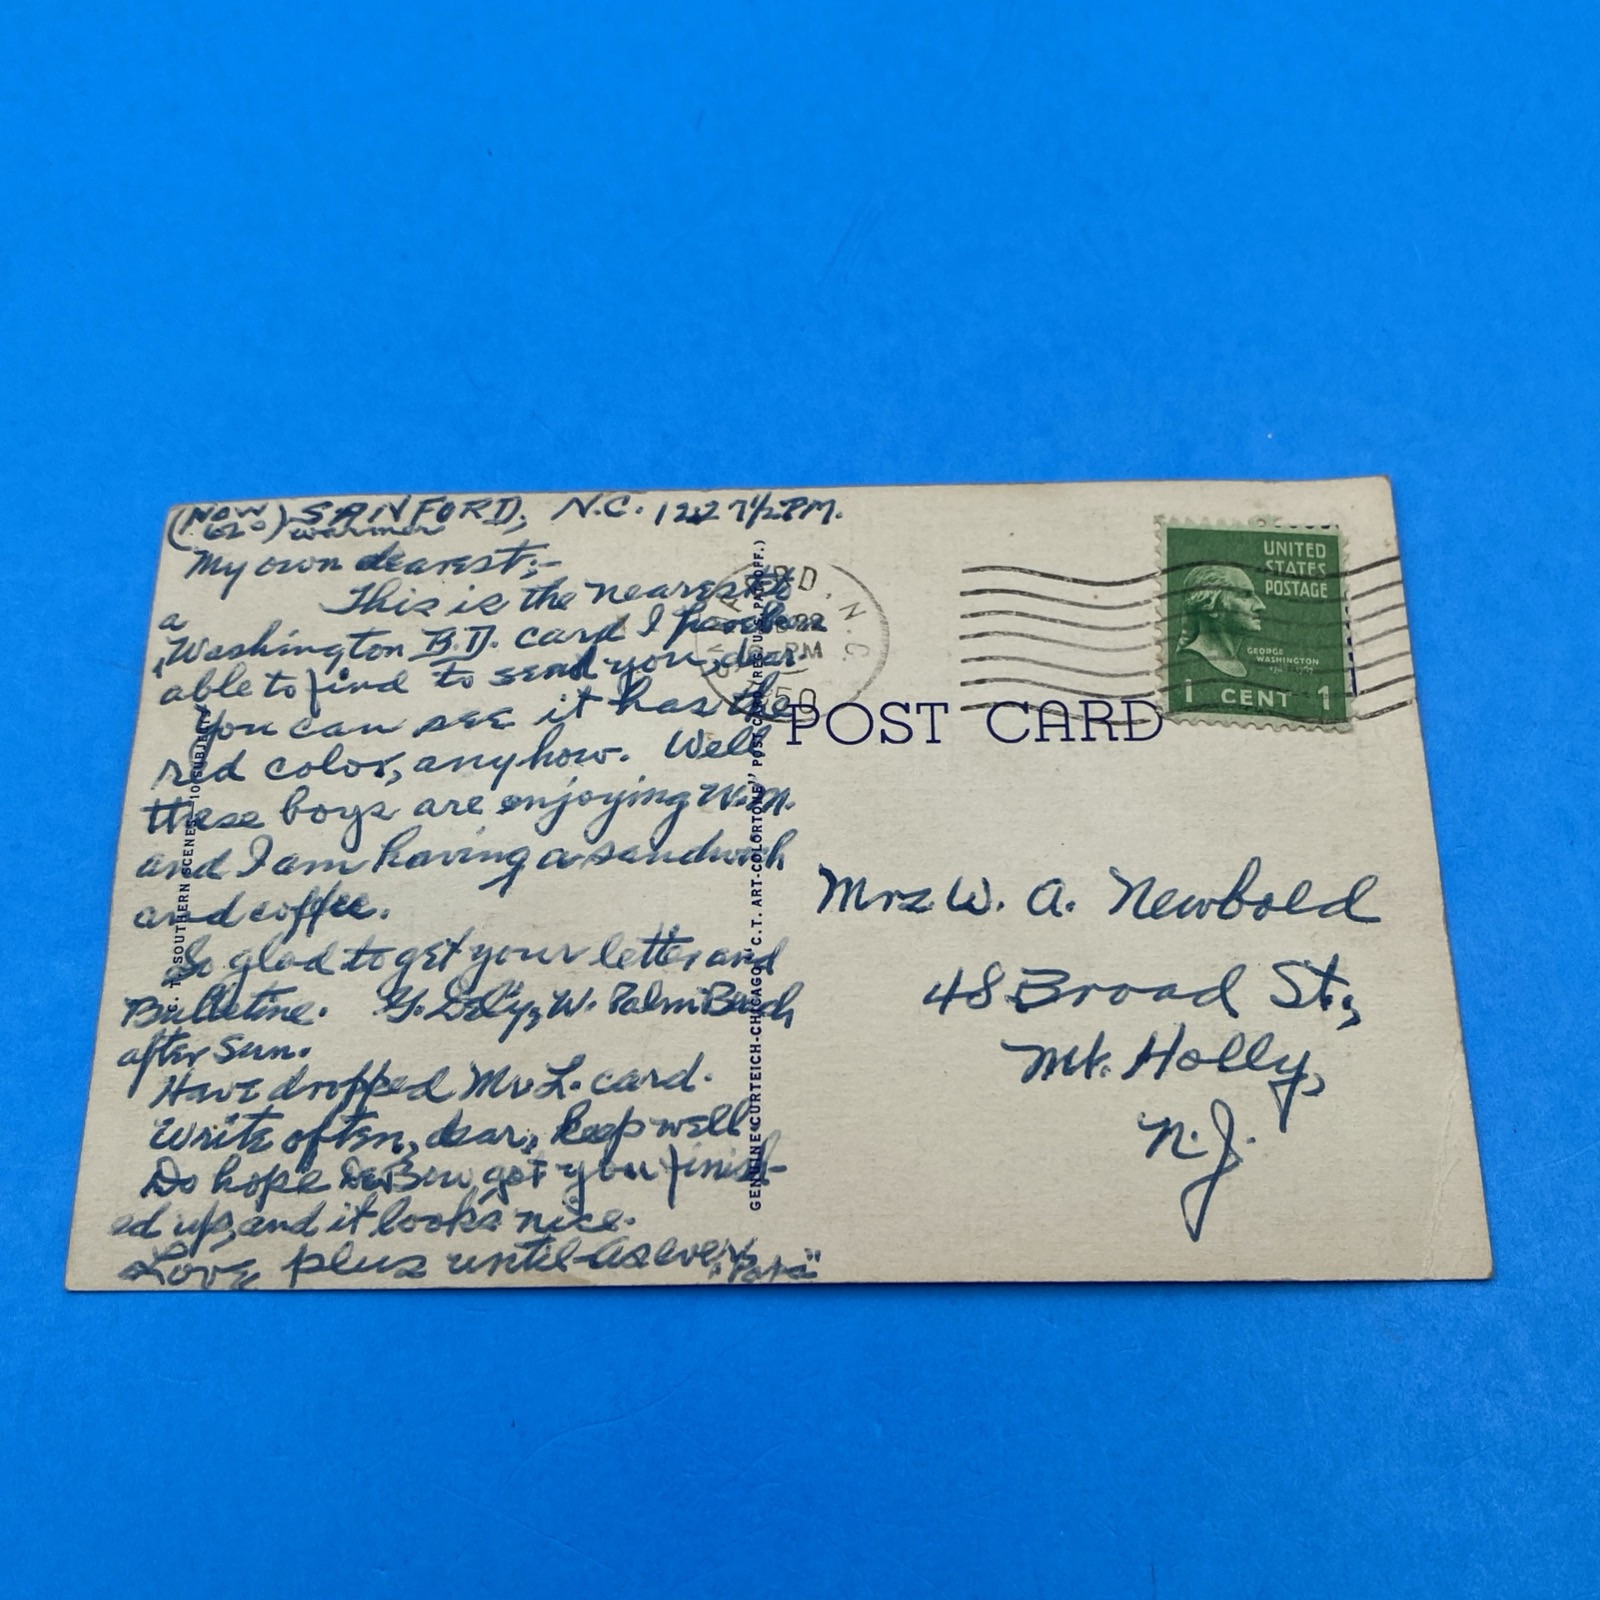 (NOW 62°) SANFORD, N.C. 1 2/22 7 1/2 PM.
warmer
My own dearest;-
This is the nearest to
a
Washington B.D. card I have been
able to find to send you, dear
You can see it has the
red color, anyhow. Well
these boys are enjoying
and I am having a sandwich
and coffee.
So glad to get your letter and
Bulletine. G. Dely, W. Palm Beach
after Sun.
Have dropped Mr L. card.
Write often, dear, keep well
Do hope DeBow got you finish-
ed up, and it looks nice.
Love plus until - As ever, "Papa"
C. T. SOUTHERN SCENES—10 SUBJECTS
GENUINE CURTEICH-CHICAGO "C. T. ART-COLORTONE" POST CARD (REG. U. S. PAT. OFF.)
N. C.
PM
50
UNITED
STATES
POSTAGE
GEORGE
WASHINGTON
1 CENT 1
POST CARD
Mrs W. A. Newbold
48 Broad St.,
Mt. Holly,
N.J.